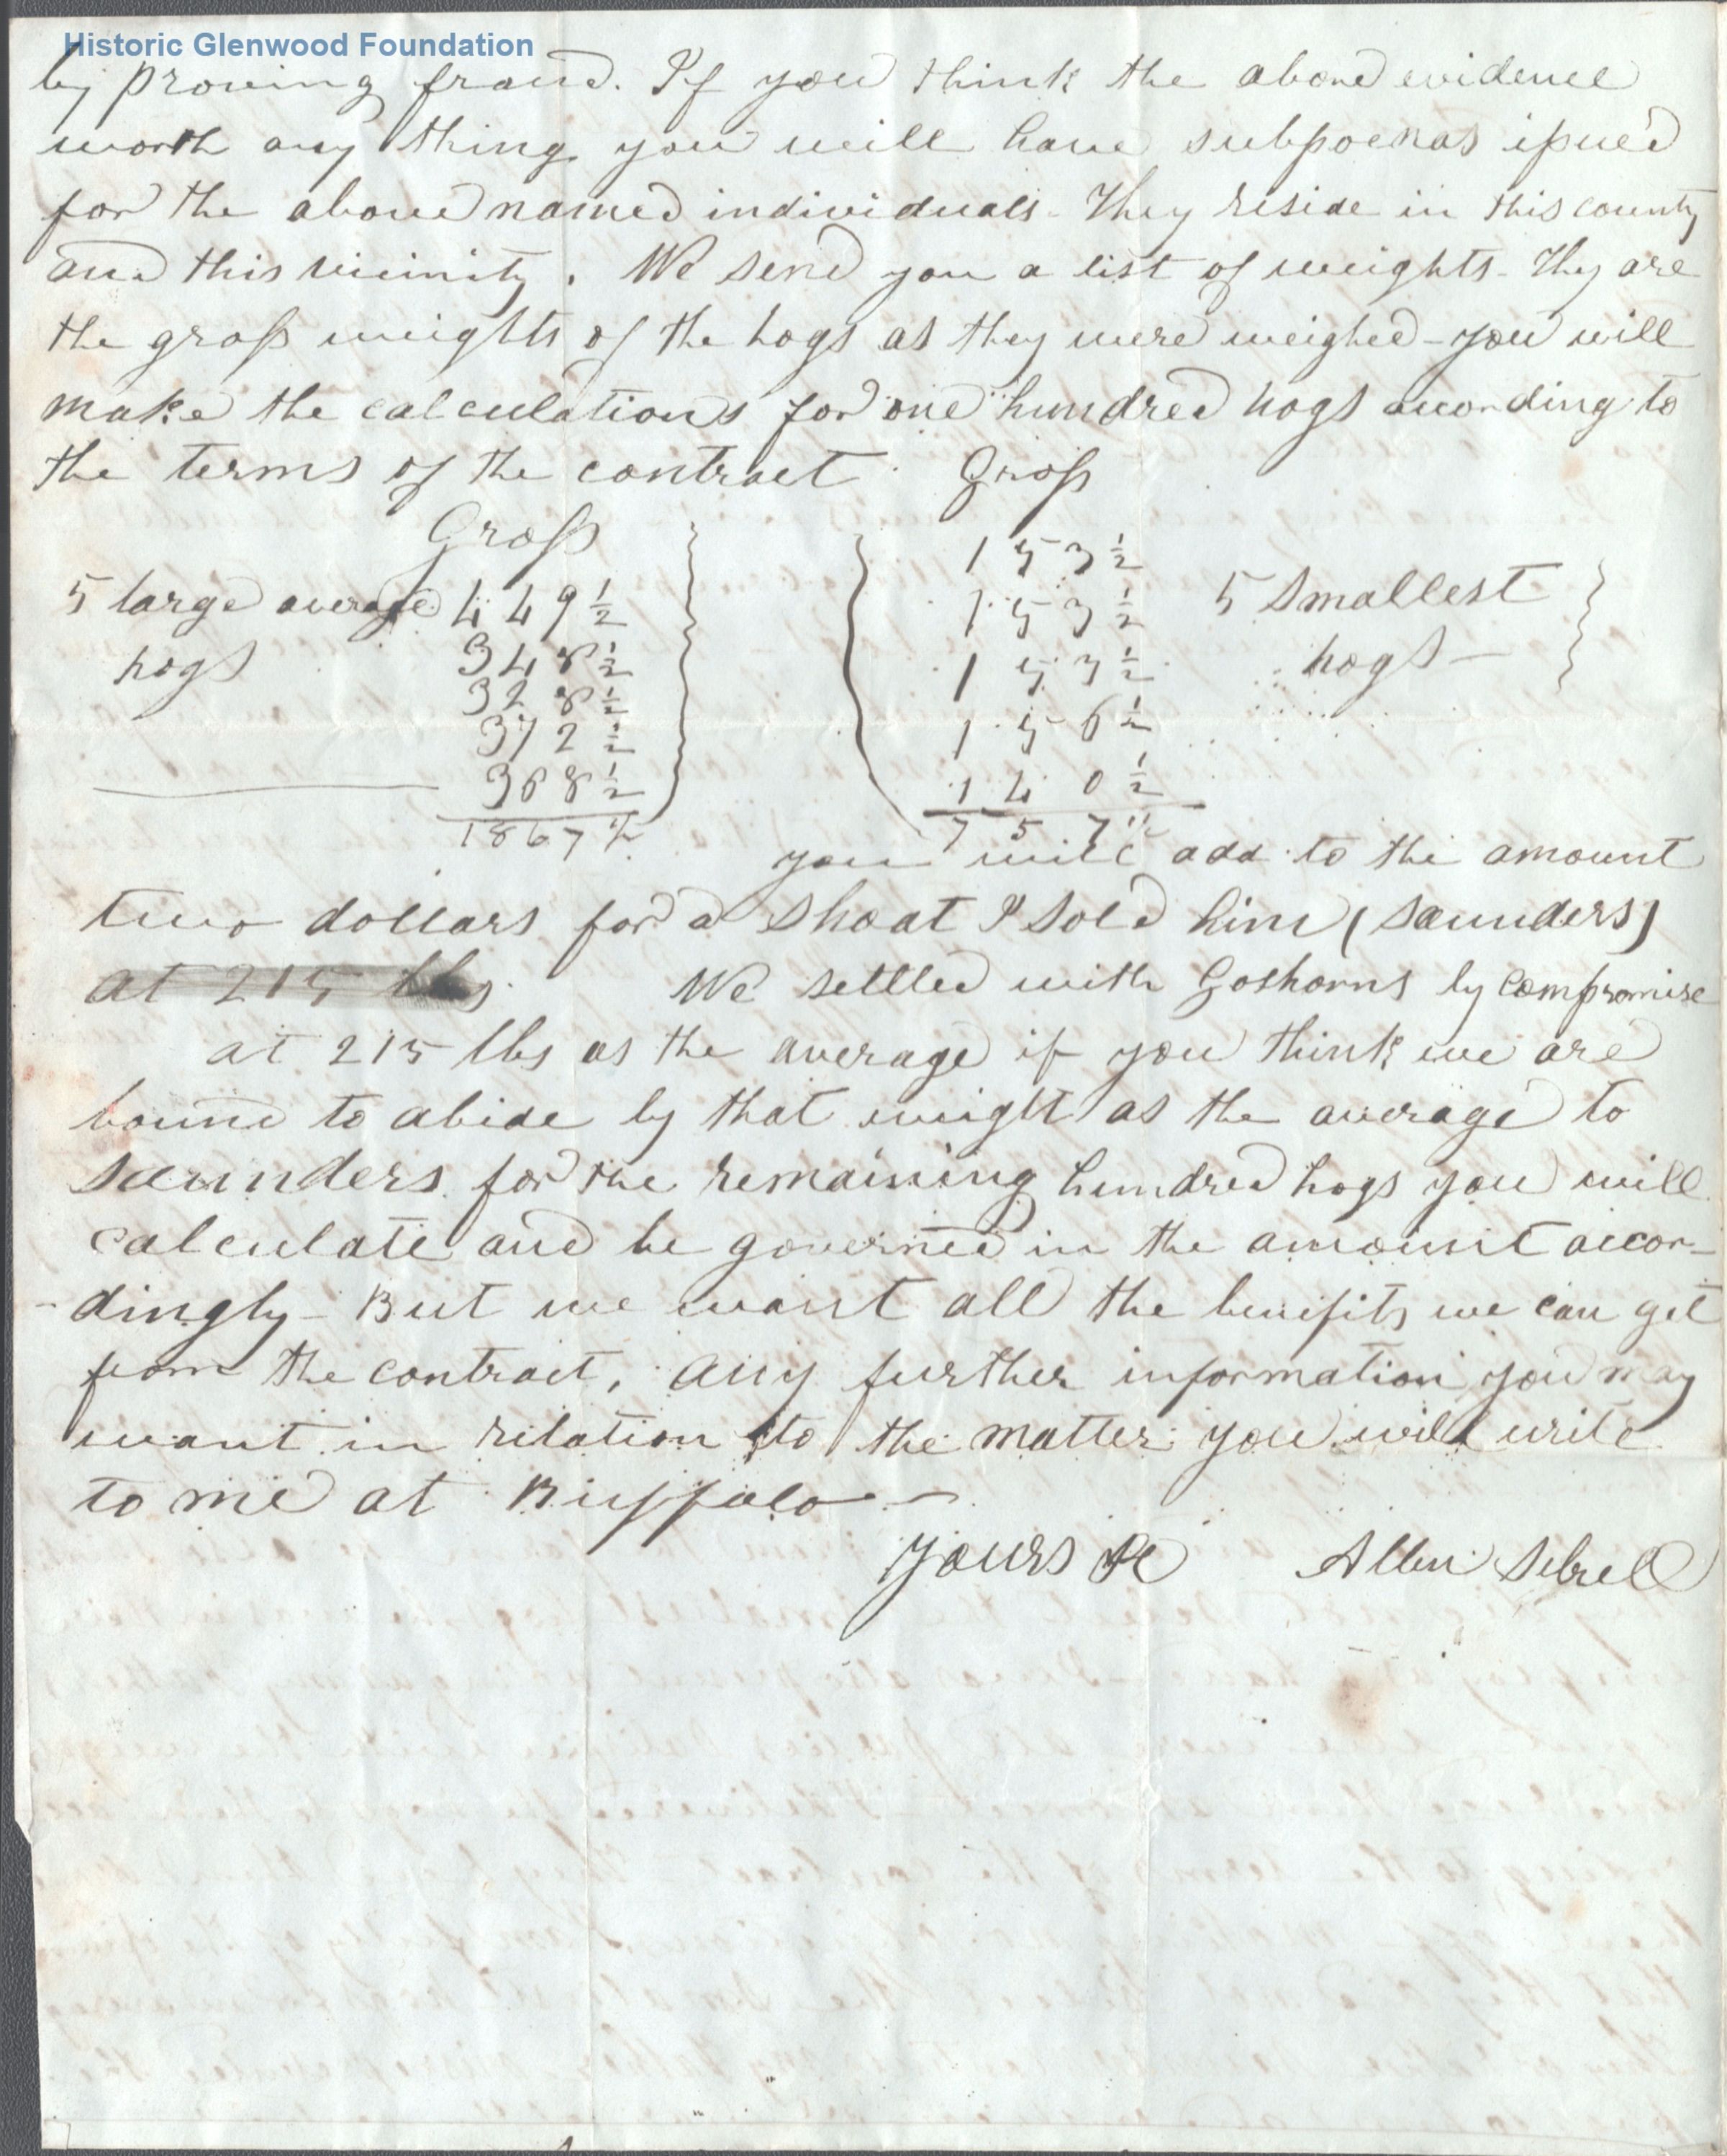 Historic Glenwood Foundation
by proving fraud. If you think the above evidence
worth any thing you will have subpoenas issued
for the above named individuals - They reside in this county
and this vicinity. We send you a list of weights - They are
the gross weights of the hogs as they were weighed - you will
make the calculations for one hundred hogs according to
the terms of the contract. Gross
Gross
5 large average 449½
hogs 348½
328½
372½
368½
1867½
153½
153½
153½
156½
140½
757½
5 Smallest
hogs -
you will add to the amount
two dollars for a shoat I sold him (Saunders)
at 215 lbs. We settled with Goshorns by compromise
at 215 lbs as the average if you think we are
bound to abide by that weight as the average to
Saunders for the remaining hundred hogs you will
calculate and be governed in the amount accor-
-dingly - But we want all the benifits we can get
from the contract, any further information you may
want in rilation to the matter you will write
to me at Buffalo -
Yours &c Allen Sebrell